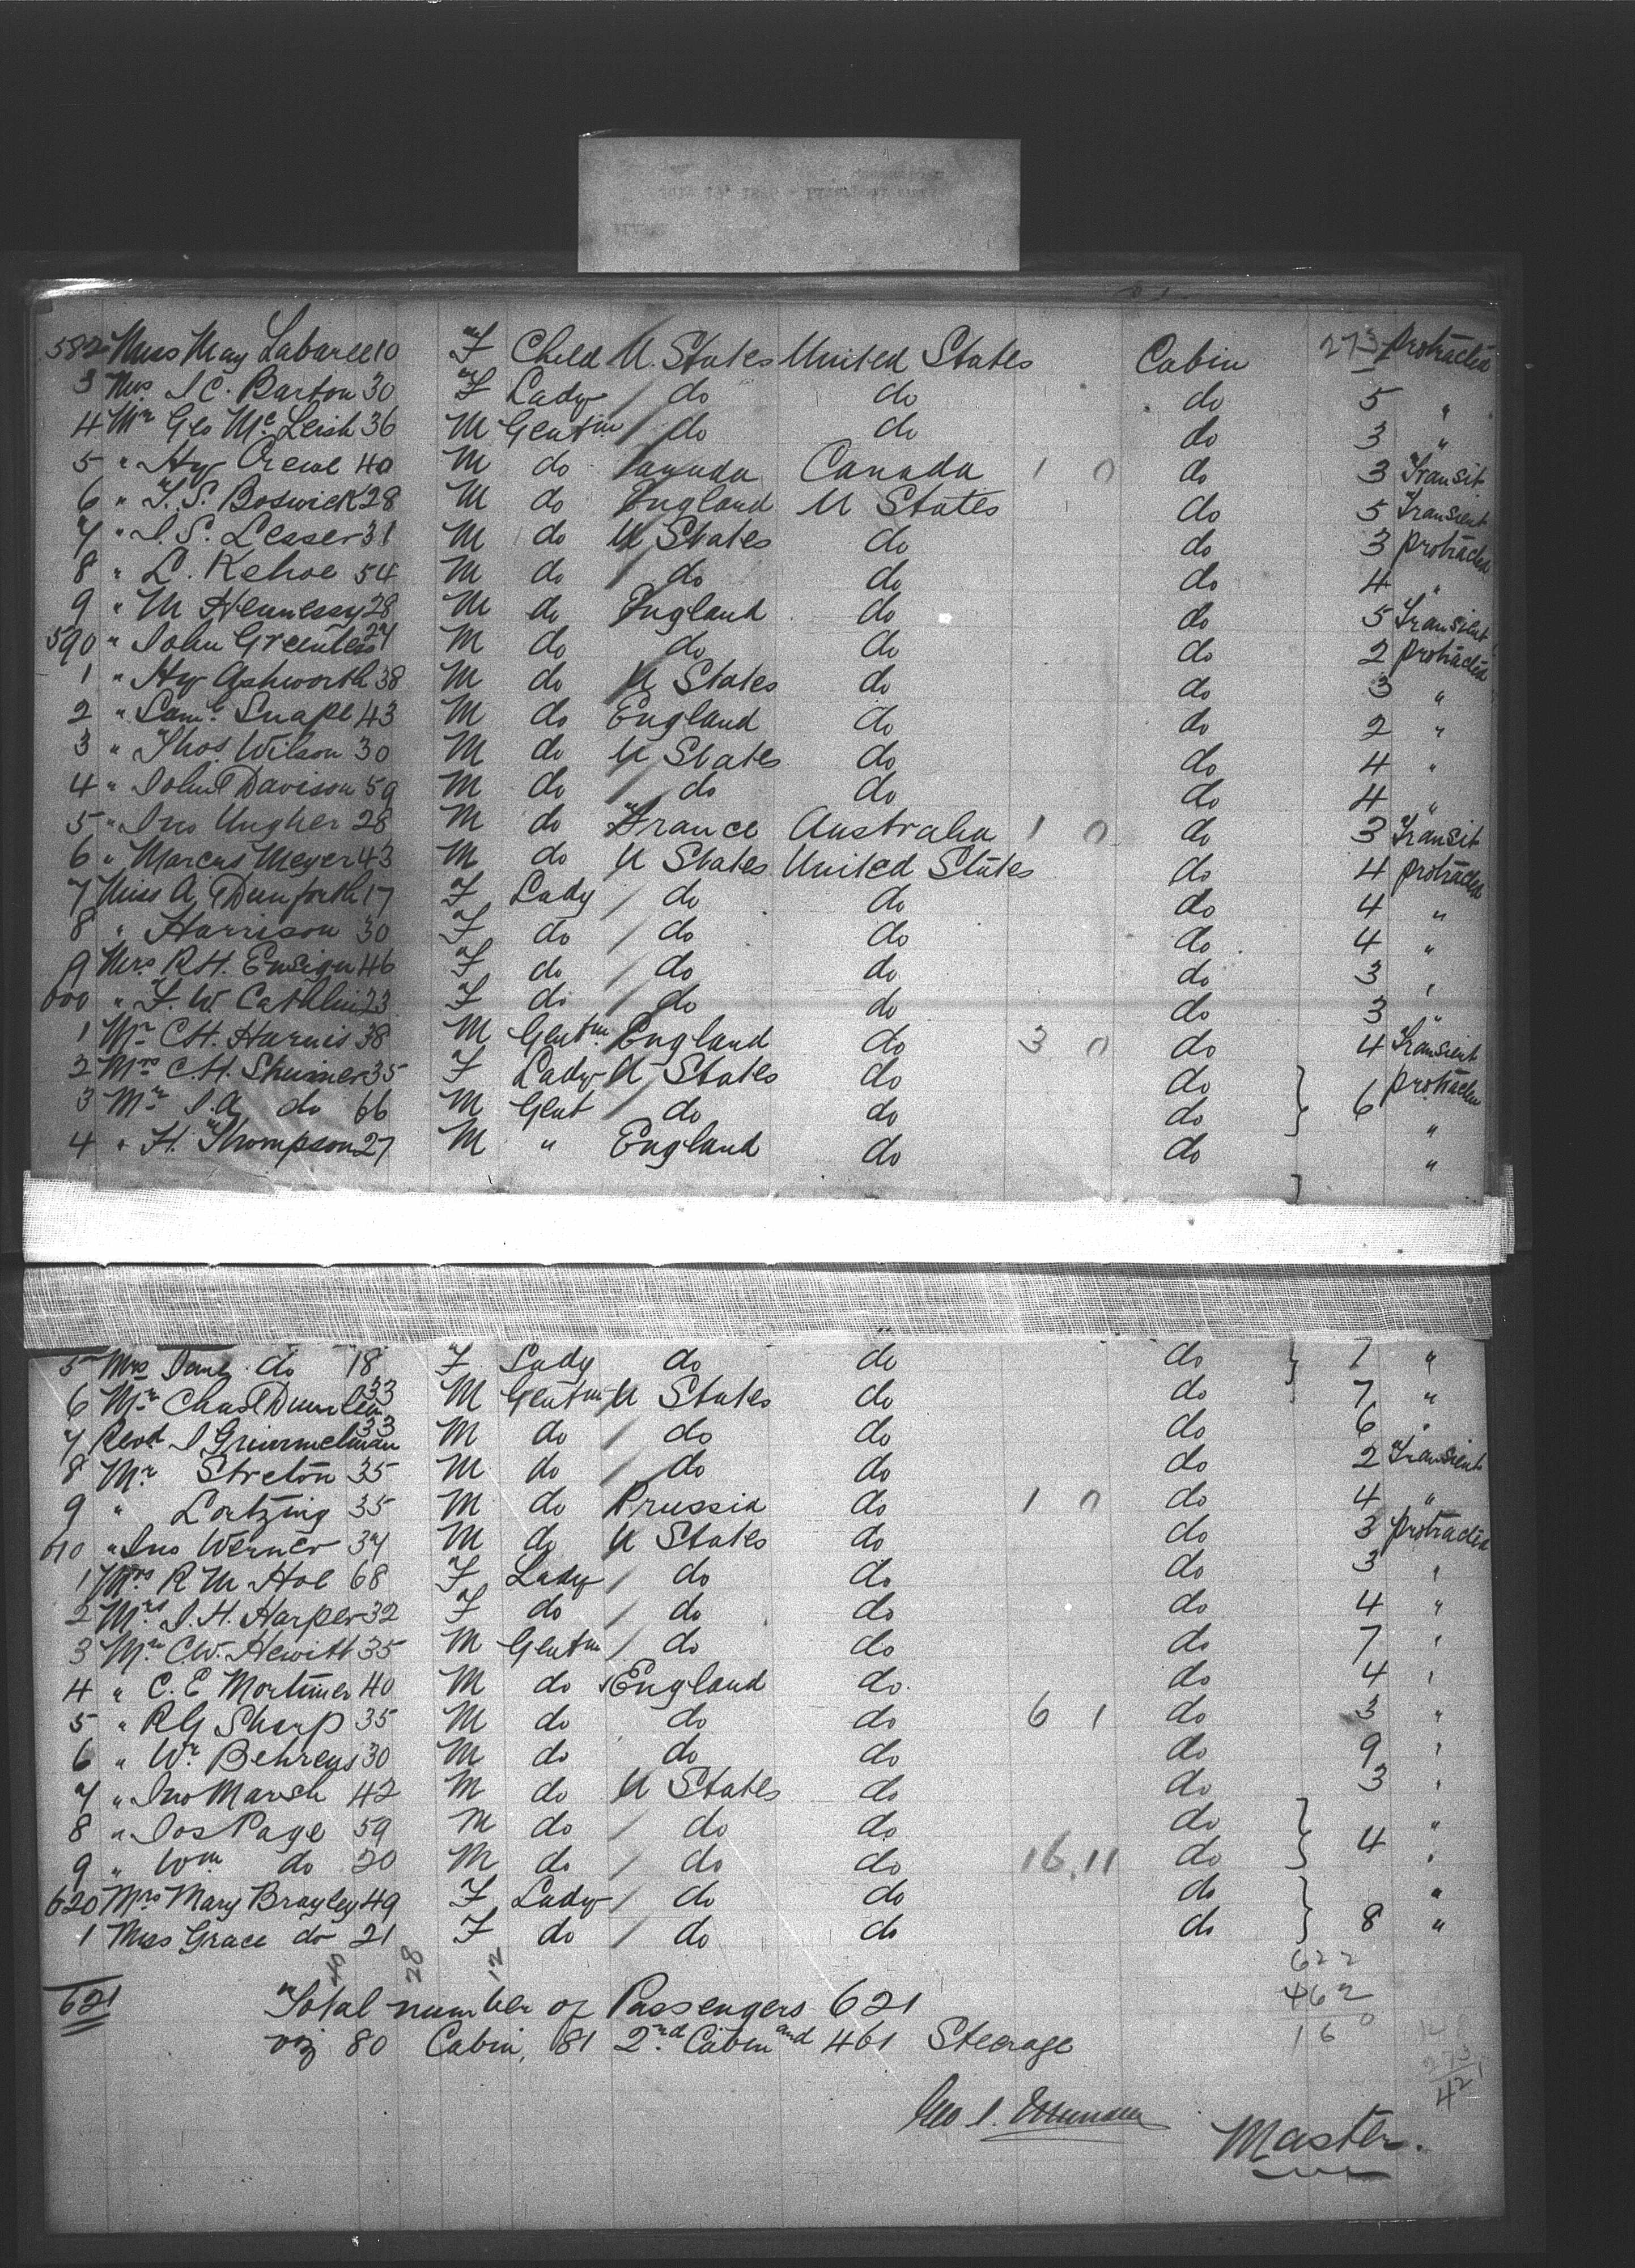 582 Miss May Labaree 10 F Child U. States United States Cabin 273 protracted
3 Mrs. I C. Barton 30 F Lady / do do do 5 "
4 Mr Geo McLeish 36 M Gentm / do do do 3 "
5 " Hy Crewe 40 M do Canada Canada 1 0 do 3 Transit
6 " T. S. Boswick 28 M do England U States do 5 Transient
7 " I. S. Lesser 31 M do U States do do 3 protracted
8 " L. Kehoe 54 M do / do do do 4 "
9 " M Hennessy 28 M do England do do 5 Transient
590 " John Greenlees 27 M do do do do 2 protracted
1 " Hy Ashworth 38 M do U States do do 3 "
2 " Saml. Snape 43 M do England do do 2 "
3 " Thos. Wilson 30 M do U States do do 4 "
4 " John Davison 59 M do / do do do 4 "
5 " Jno Ungher 28 M do France Australia 1 0 do 3 Transit
6 " Marcus Meyer 43 M do U States United States do 4 protracted
7 Miss A Dunforth 17 F Lady / do do do 4 "
8 " Harrison 30 F do / do do do 4 "
9 Mrs R H. Ensign 46 F do / do do do 3 "
600 " F. W Cathlin 23 F do / do do do 3 "
1 Mr C H. Harris 38 M Gentm. England do 3 0 do 4 Transient
2 Mrs C. H. Shumer 35 F Lady U States do do protracted
3 Mr I. A. do 66 M Gent / do do do } 6 "
4 " H. Thompson 27 M " England do do "
5 Mrs Jane do 18 F Lady do do do } 7 "
6 Mr Chas 33 M Gentm U States do do 7 "
7 Revd. J Grimmelman 33 M do / do do do 6 "
8 Mr Streton 35 M do / do do do 2 Transient
9 " Lortzing 35 M do Prussia do 1 0 do 4 "
610 " Jno Werner 37 M do U States do do 3 protracted
1 Mrs R M Hoe 68 F Lady / do do do 3 "
2 Mrs J. H. Harper 32 F do / do do do 4 "
3 Mr C. W. Hewitt 35 M Gentm / do do do 7 "
4 " C. E Mortimer 40 M do England do do 4 "
5 " R G Sharp 35 M do do do 6 1 do 3 "
6 " Wr Behrens 30 M do do do do 9 "
7 " Jno Marsh 42 M do U States do do 3 "
8 " Jos Page 59 M do / do do do "
9 " Wm do 20 M do / do do 16 11 do } 4 "
620 Mrs Mary Brayley 49 F Lady / do do do "
1 Miss Grace do 21 F do / do do do } 8 "
40 28 12 622
621 Total number of Passengers 621 462
viz 80 Cabin, 81 2nd. Cabin and 461 Steerage 160
148
273
421
Geo S.
Master.